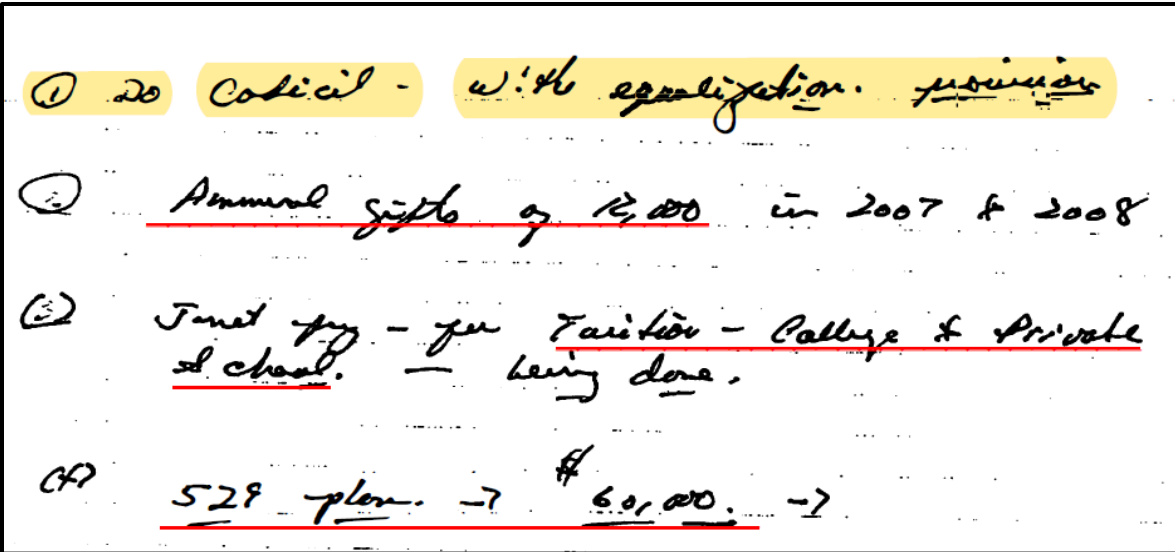 ① Do Codicil - with equalization. provision
② Annual gifts of 12,000 in 2007 & 2008
(3) Janet pay - for Tuition - College & Private
School. — being done.
(4) 529 plan. → $60,000. →